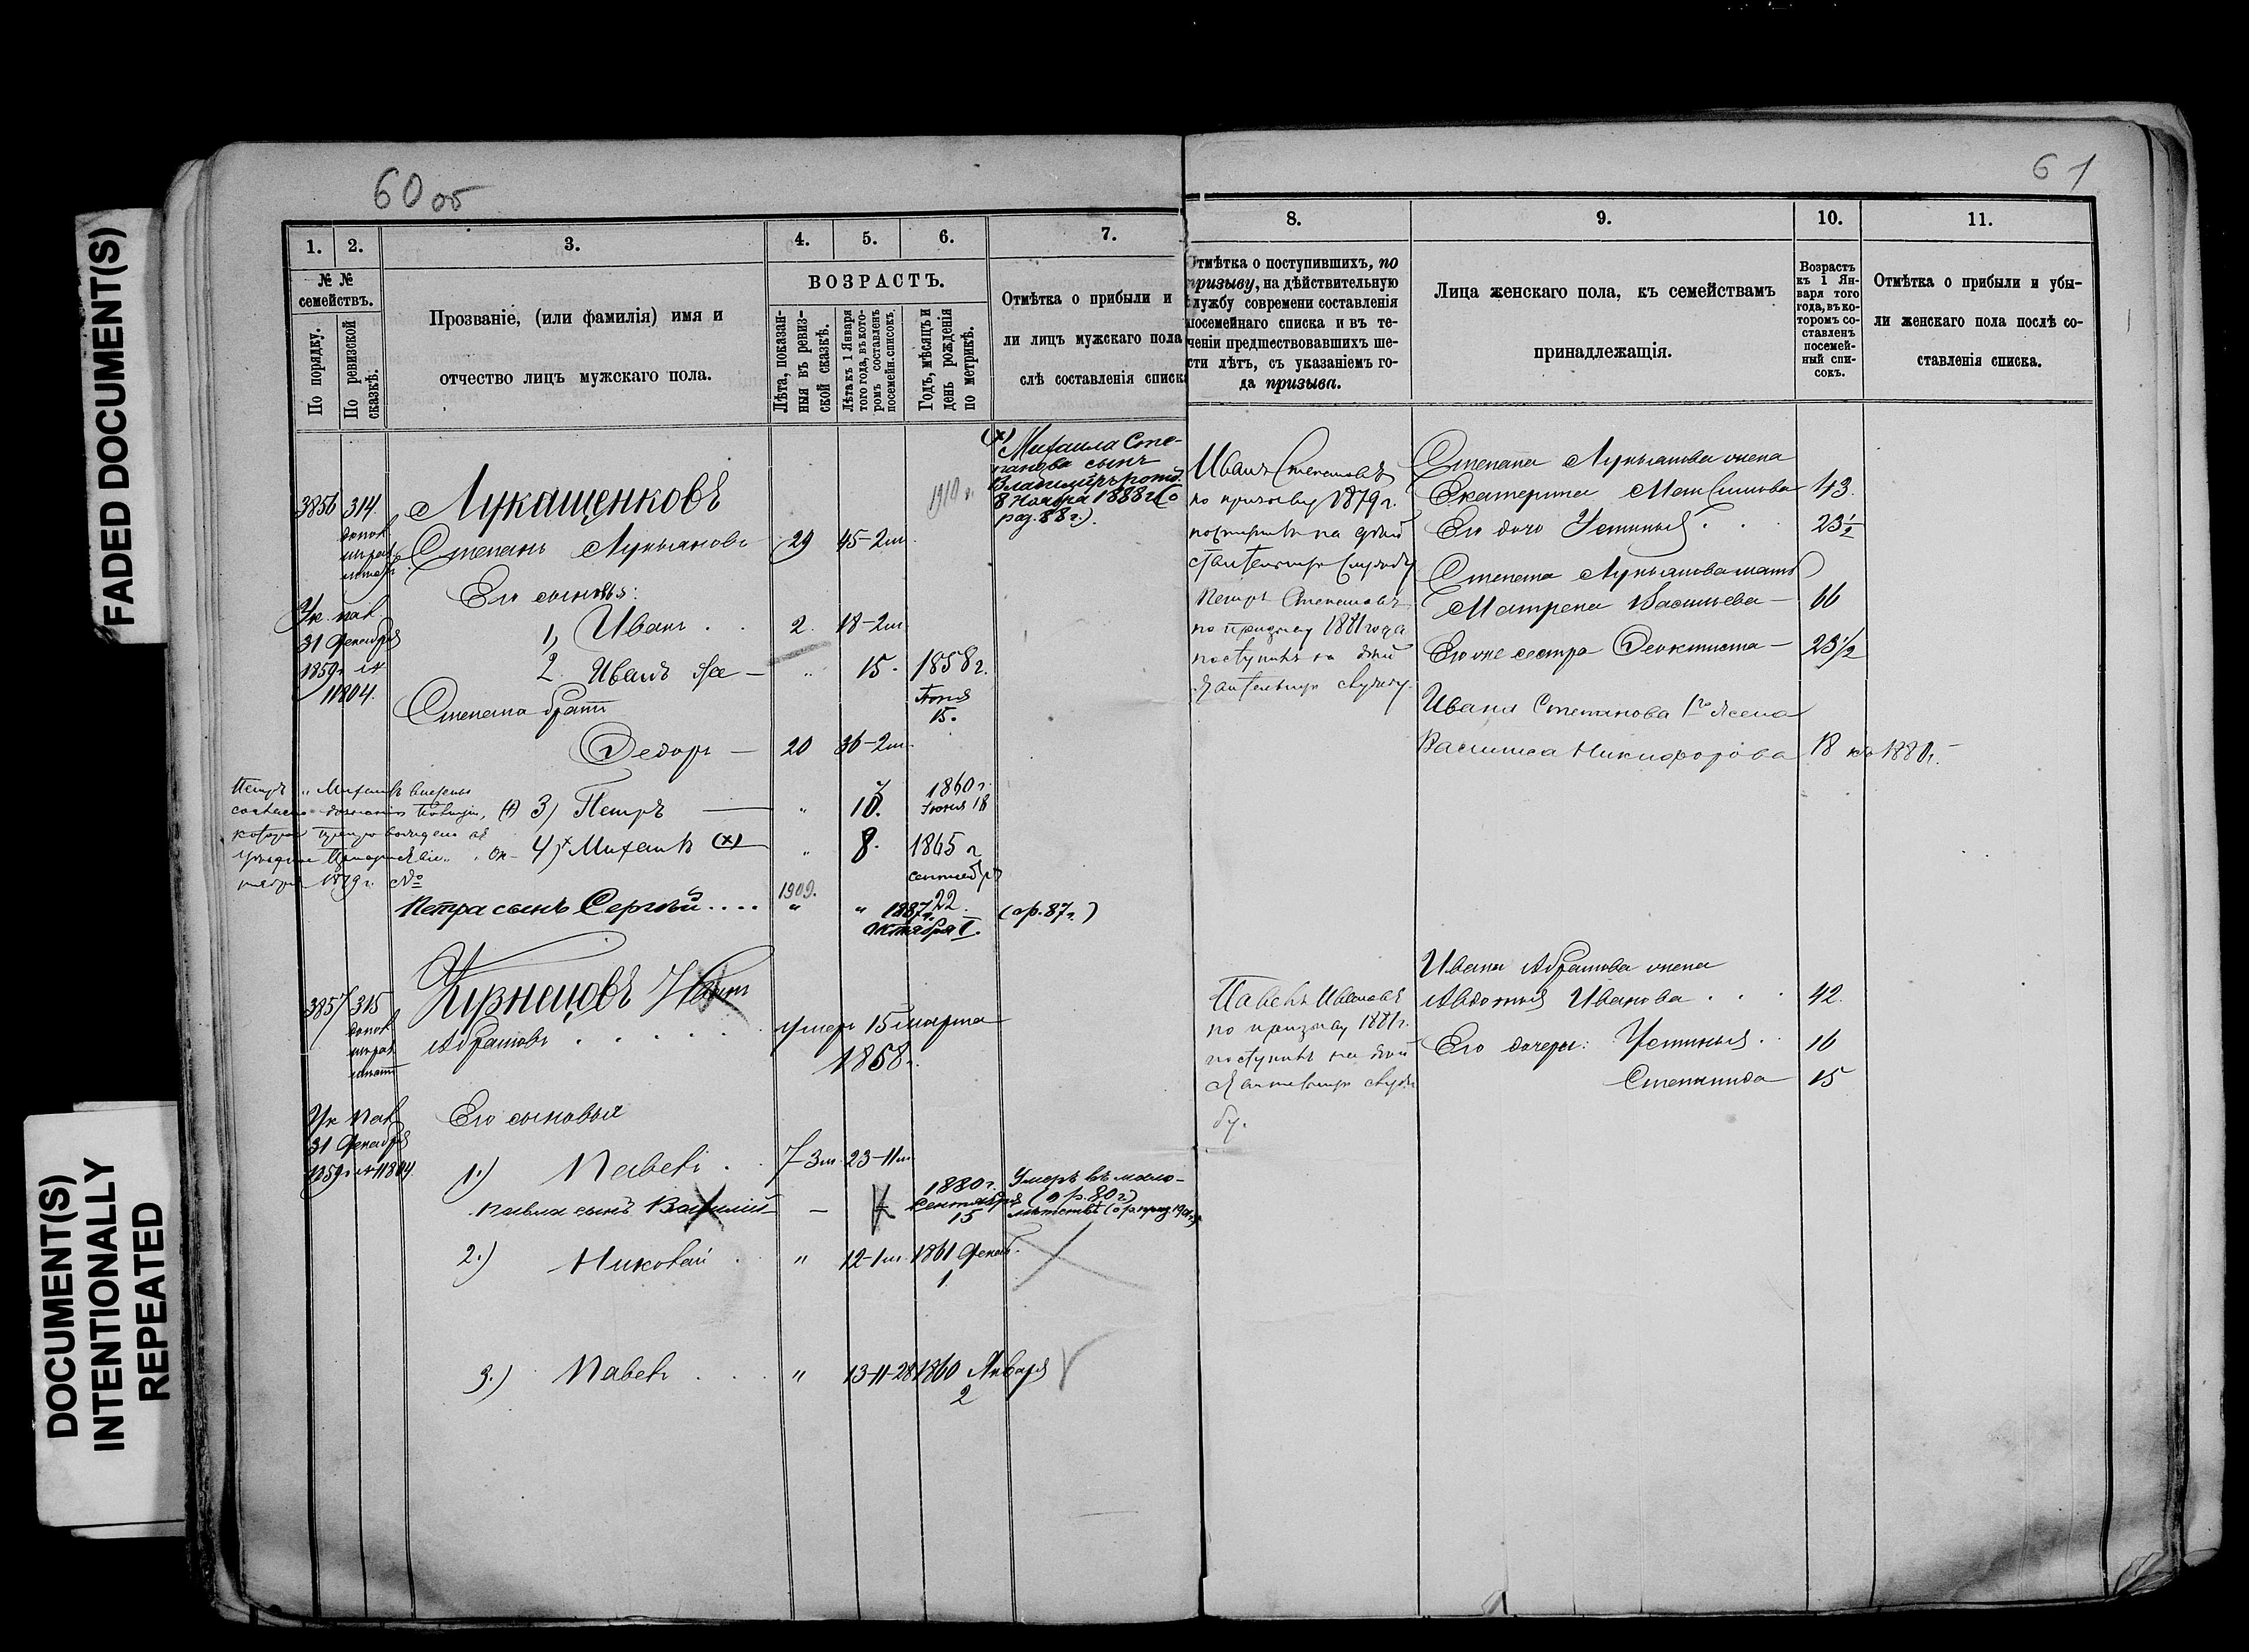 FADED DOCUMENT(S)
DOCUMENT(S)
INTENTIONALLY
REPEATED
60 об
1.
2.
3.
4.
5.
6.
7.
№ №
семействъ.
По порядку.
По ревизской
сказкѣ.
Прозваніе, (или фамилія) имя и
отчество лицъ мужскаго пола.
ВОЗРАСТЪ.
Лѣта, показан-
ныя въ ревиз-
ской сказкѣ.
Лѣта къ 1 Января
того года, въ кото-
ромъ составленъ
посемейн. списокъ.
Годъ, мѣсяцъ и
день рожденія
по метрикѣ.
Отмѣтка о прибыли и
ли лицъ мужскаго пола
слѣ составленія списка
(х) Михаила Сте-
панова сынъ
Владиміръ
8 Ноября 1888 г. (о
род. 88 г.).
1910 г.
3856 314. Лукащенковъ
Степанъ Лукьяновъ 29 45-2м.
Его сыновья:
Ук. пал.
31 Декабря
1859 г. №
11804.
1, Иванъ . . 2. 18-2м.
2. Иванъ же — " 15. 1858 г.
Іюня
15.
Степана братъ
Ѳедоръ — 20 36-2м.
Петръ и Михаилъ внесены
3) Петръ — " 10. 1860 г.
Іюня 18
4) Михаилъ (х) " 8. 1865 г.
сентября
22.
1879 г. №
1909.
Петра сынъ Сергѣй.... " " 1887 г. (ор. 87 г.)
октября 1.
3857 315 Кузнецовъ Иванъ
Абрамовъ . . . . умеръ 15 марта
1858 г.
Ук пал
31 Декабря
1859 г. № 11804.
Его сыновья
1.) Павелъ . . 7-3м. 23-11м.
Павла сынъ Василій — 1880 г.
Сентября
15
Умеръ въ мало-
(о р. 80 г.)
лѣтствѣ
2.) Николай . " 12-1м. 1861 Декаб.
1.
3.) Павелъ . . . " 13-11-28 1860 Января
2
61
8.
9.
10.
11.
Отмѣтка о поступившихъ, по
призыву, на дѣйствительную
службу современи составленія
посемейнаго списка и въ те-
ченіи предшествовавшихъ ше-
сти лѣтъ, съ указаніемъ го-
да призыва.
Лица женскаго пола, къ семействамъ
принадлежащія.
Возрастъ
къ 1 Ян-
варя того
года, въ ко-
торомъ со-
ставленъ
посемей-
ный спи-
сокъ.
Отмѣтка о прибыли и убы-
ли женскаго пола послѣ со-
ставленія списка.
Иванъ Степановъ
по призыву 1879 г.
поступилъ на дѣй
ствительную службу
Петръ Степановъ
по призыву 1881 года
поступилъ на дѣй
ствительную службу.
Степана Лукьянова жена
Екатерина Максимова 43.
Его дочь Устинья . . 23½
Степана Лукьянова мать
Матрена Васильева — 66
Его же сестра Ѳеоктиста — 23½
Ивана Степанова 1го жена
Василиса Никифорова 18 къ 1880 г.
Павелъ Ивановъ
по призыву 1881 г.
поступилъ на дѣй
ствительную служ
бу.
Ивана Абрамова жена
Авдотья Иванова . . . 42.
Его дочери: Устинья . . 16
Степанида 15